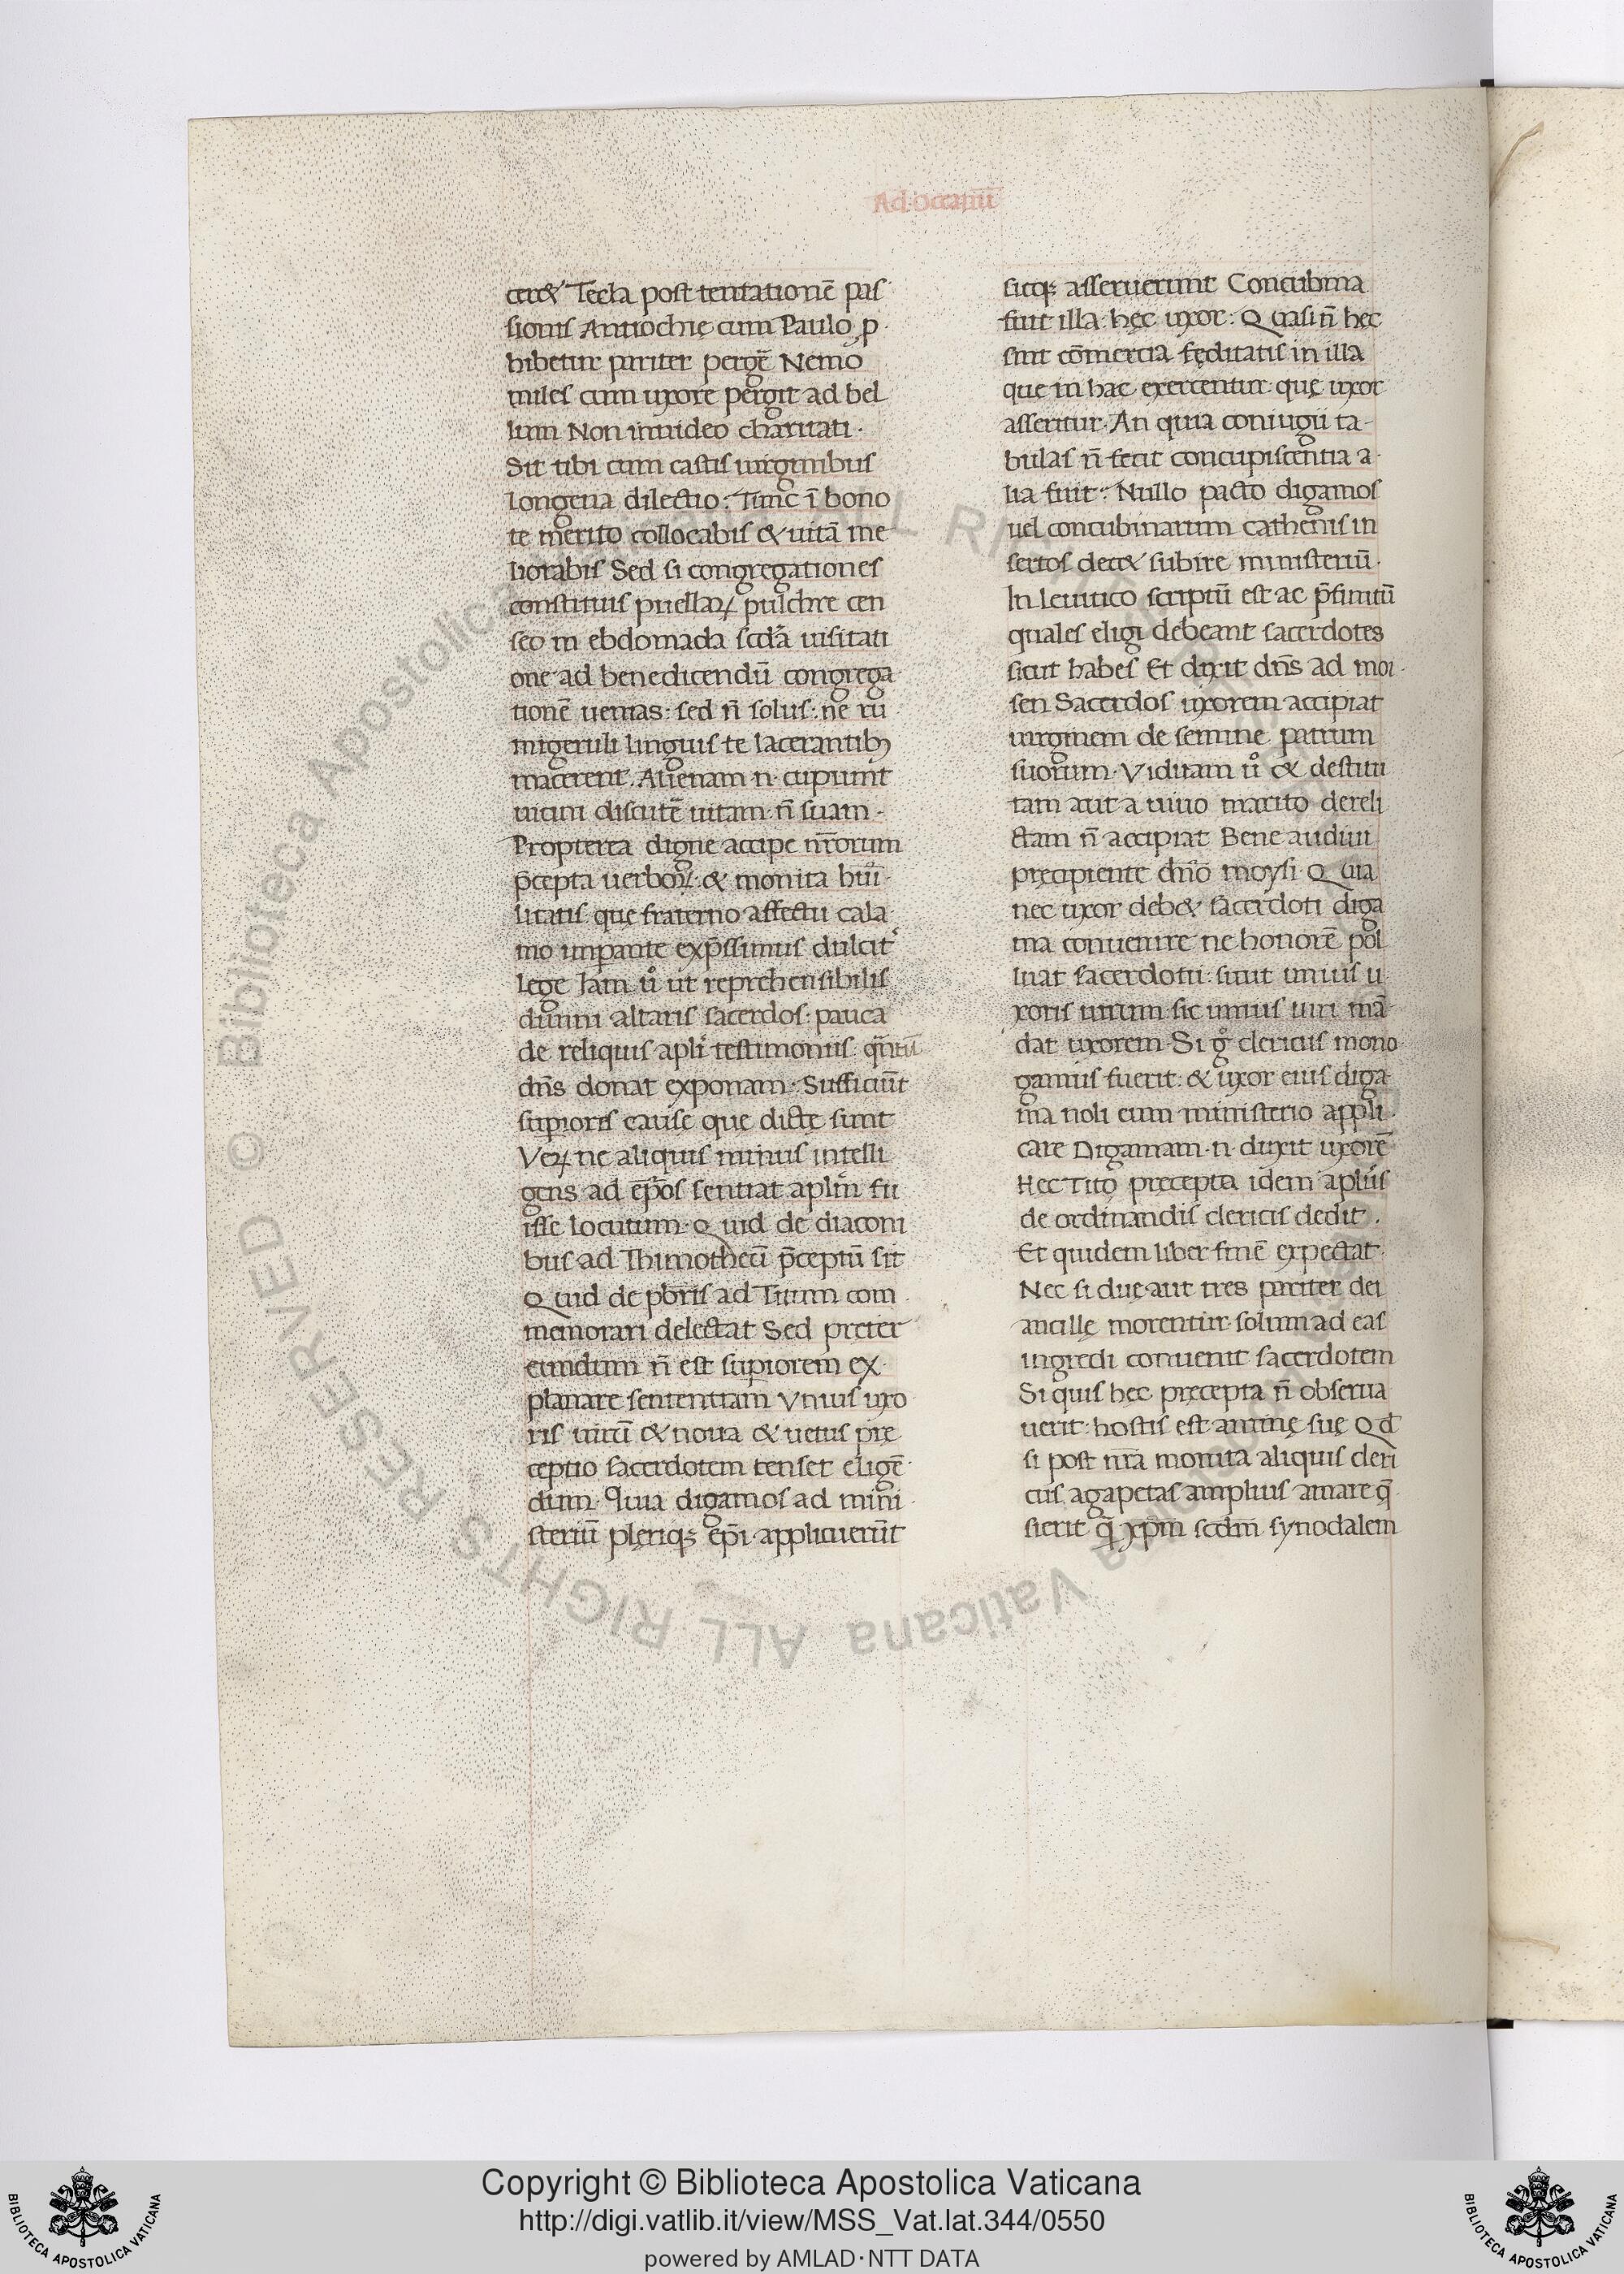 Ad Occanū
cer& Tecla post tentationē pas
sionis Antiochię cum Paulo p
hibetur pariter pergē Nemo
miles cum uxore pergit ad bel
lum Non inuideo charitati·
Sit tibi cum castis uirginibus
longeua dilectio: Tunc ī bono
te merito collocabis & uitā me
liorabis Sed si congregationes
constituis puellaꝝ pulchre cen
seo in ebdomada scd̄a uisitati
one ad benedicendū congrega
tionē uenias: sed n̄ solus: ne ru
migeruli linguis te lacerantibꝫ
macerent. Alienam n· cupiunt
uicini discutē uitam· n̄ suam·
Propterea digne accipe nr̄orum
p̄cepta uerboꝝ: & monita hūi
litatis que fraterno affectu cala
mo imperante exp̄ssimus dulcit
lege Iam ů ut reprehensibilis
diuini altaris sacerdos: pauca
de reliquis apl̄i testimoniis: qn̄tū
dn̄s donat exponam· Sufficiūt
supioris cause que dicte sunt
Veꝝ ne aliquis minus intelli
gens ad ep̄os sentiat apl̄m fu
isse locutum· Quid de diaconi
bus ad Thimotheū p̄ceptū sit
Quid de pb̄ris ad Titum com
memorari delectat Sed preter
eundum n̄ est supiorem ex
planare sententiam Vnius uxo
ris uirū & noua & uetus prę
ceptio sacerdotem censet eligē
dum· Qua digamos ad mini
steriū pleriqꝫ ep̄i· applicuerūt
sicqꝫ asseruerunt Concubina
fuit illa: hęc uxor: Quasi n̄ hęc
sint cōmercia fęditatis in illa
que in hac exercentur· quę uxor
asseritur· An quia coniugii ta
bulas n̄ fecit concupiscentia a
lia fuit: Nullo pacto digamos
uel concubinarum cathenis in
sertos dec& subire ministeriū·
In leuitico scriptū est ac p̄finitū
quales eligi debeant sacerdotes
sicut habes Et dixit dn̄s ad moi
sen Sacerdos uxorem accipiat
uirginem de semine patrum
suorum· Viduam ů & destitu
tam aut a uiuo marito dereli
ctam n̄ accipiat Bene audiui
pręcipiente dn̄o moysi· Quia
nec uxor deb& sacerdoti diga
ma conuenire ne honorē pol
luat sacerdotii: sicut unius u
xoris uirum: sic unius uiri mā
dat uxorem· Si g̊ clericus mono
gamus fuerit: & uxor eius diga
ma noli eum ministerio appli
care Digamam· n· duxit uxorē
Hęc Tito pręcepta idem apl̄us
de ordinandis clericis dedit.
Et quidem liber finē expectat·
Nec si duę aut tres pariter dei
ancillę morentur· solum ad eas
ingredi conuenit sacerdotem
Si quis hęc pręcepta n̄ obserua
uerit: hostis est animę suę Qd̄
si post nr̄a monita aliquis cleri
cus agapetas amplius amare q̄
sierit q̄ xp̄m scd̄m synodalem
Copyright © Biblioteca Apostolica Vaticana
http://digi.vatlib.it/view/MSS_Vat.lat.344/0550
powered by AMLAD·NTT DATA
BIBLIOTECA APOSTOLICA VATICANA
BIBLIOTECA APOSTOLICA VATICANA
Biblioteca Apostolica Vaticana ALL RIGHTS RESERVED ©